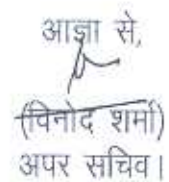 आज्ञा से,
(विनोद शर्मा)
अपर सचिव।